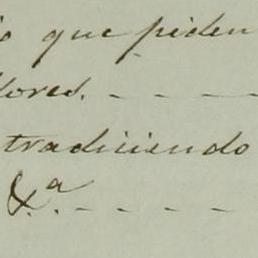 que piden
dores. - - - -
tradiciendo
&ª. - - - -